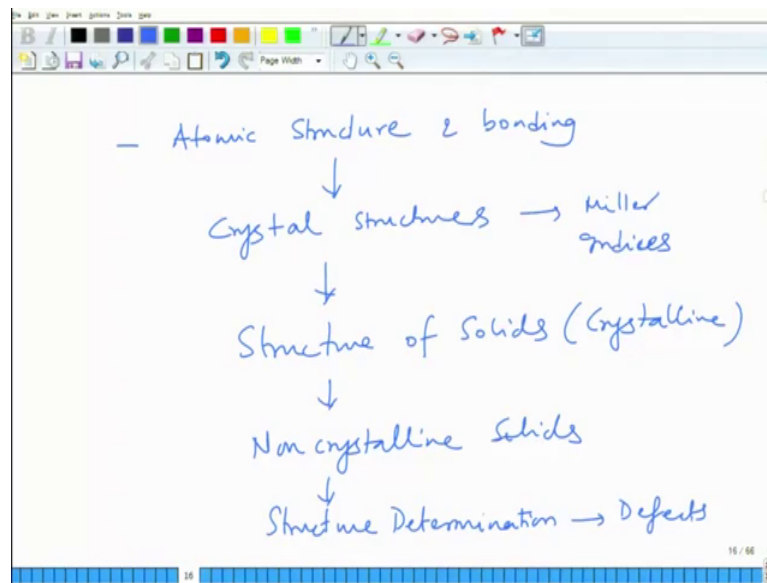 File Edit View Insert Actions Tools Help
B I
Page Width
— Atomic Structure & bonding
↓
Crystal structures → Miller
Indices
↓
Structure of Solids (Crystalline)
↓
Non crystalline Solids
↓
Structure Determination → Defects
16 / 66
16